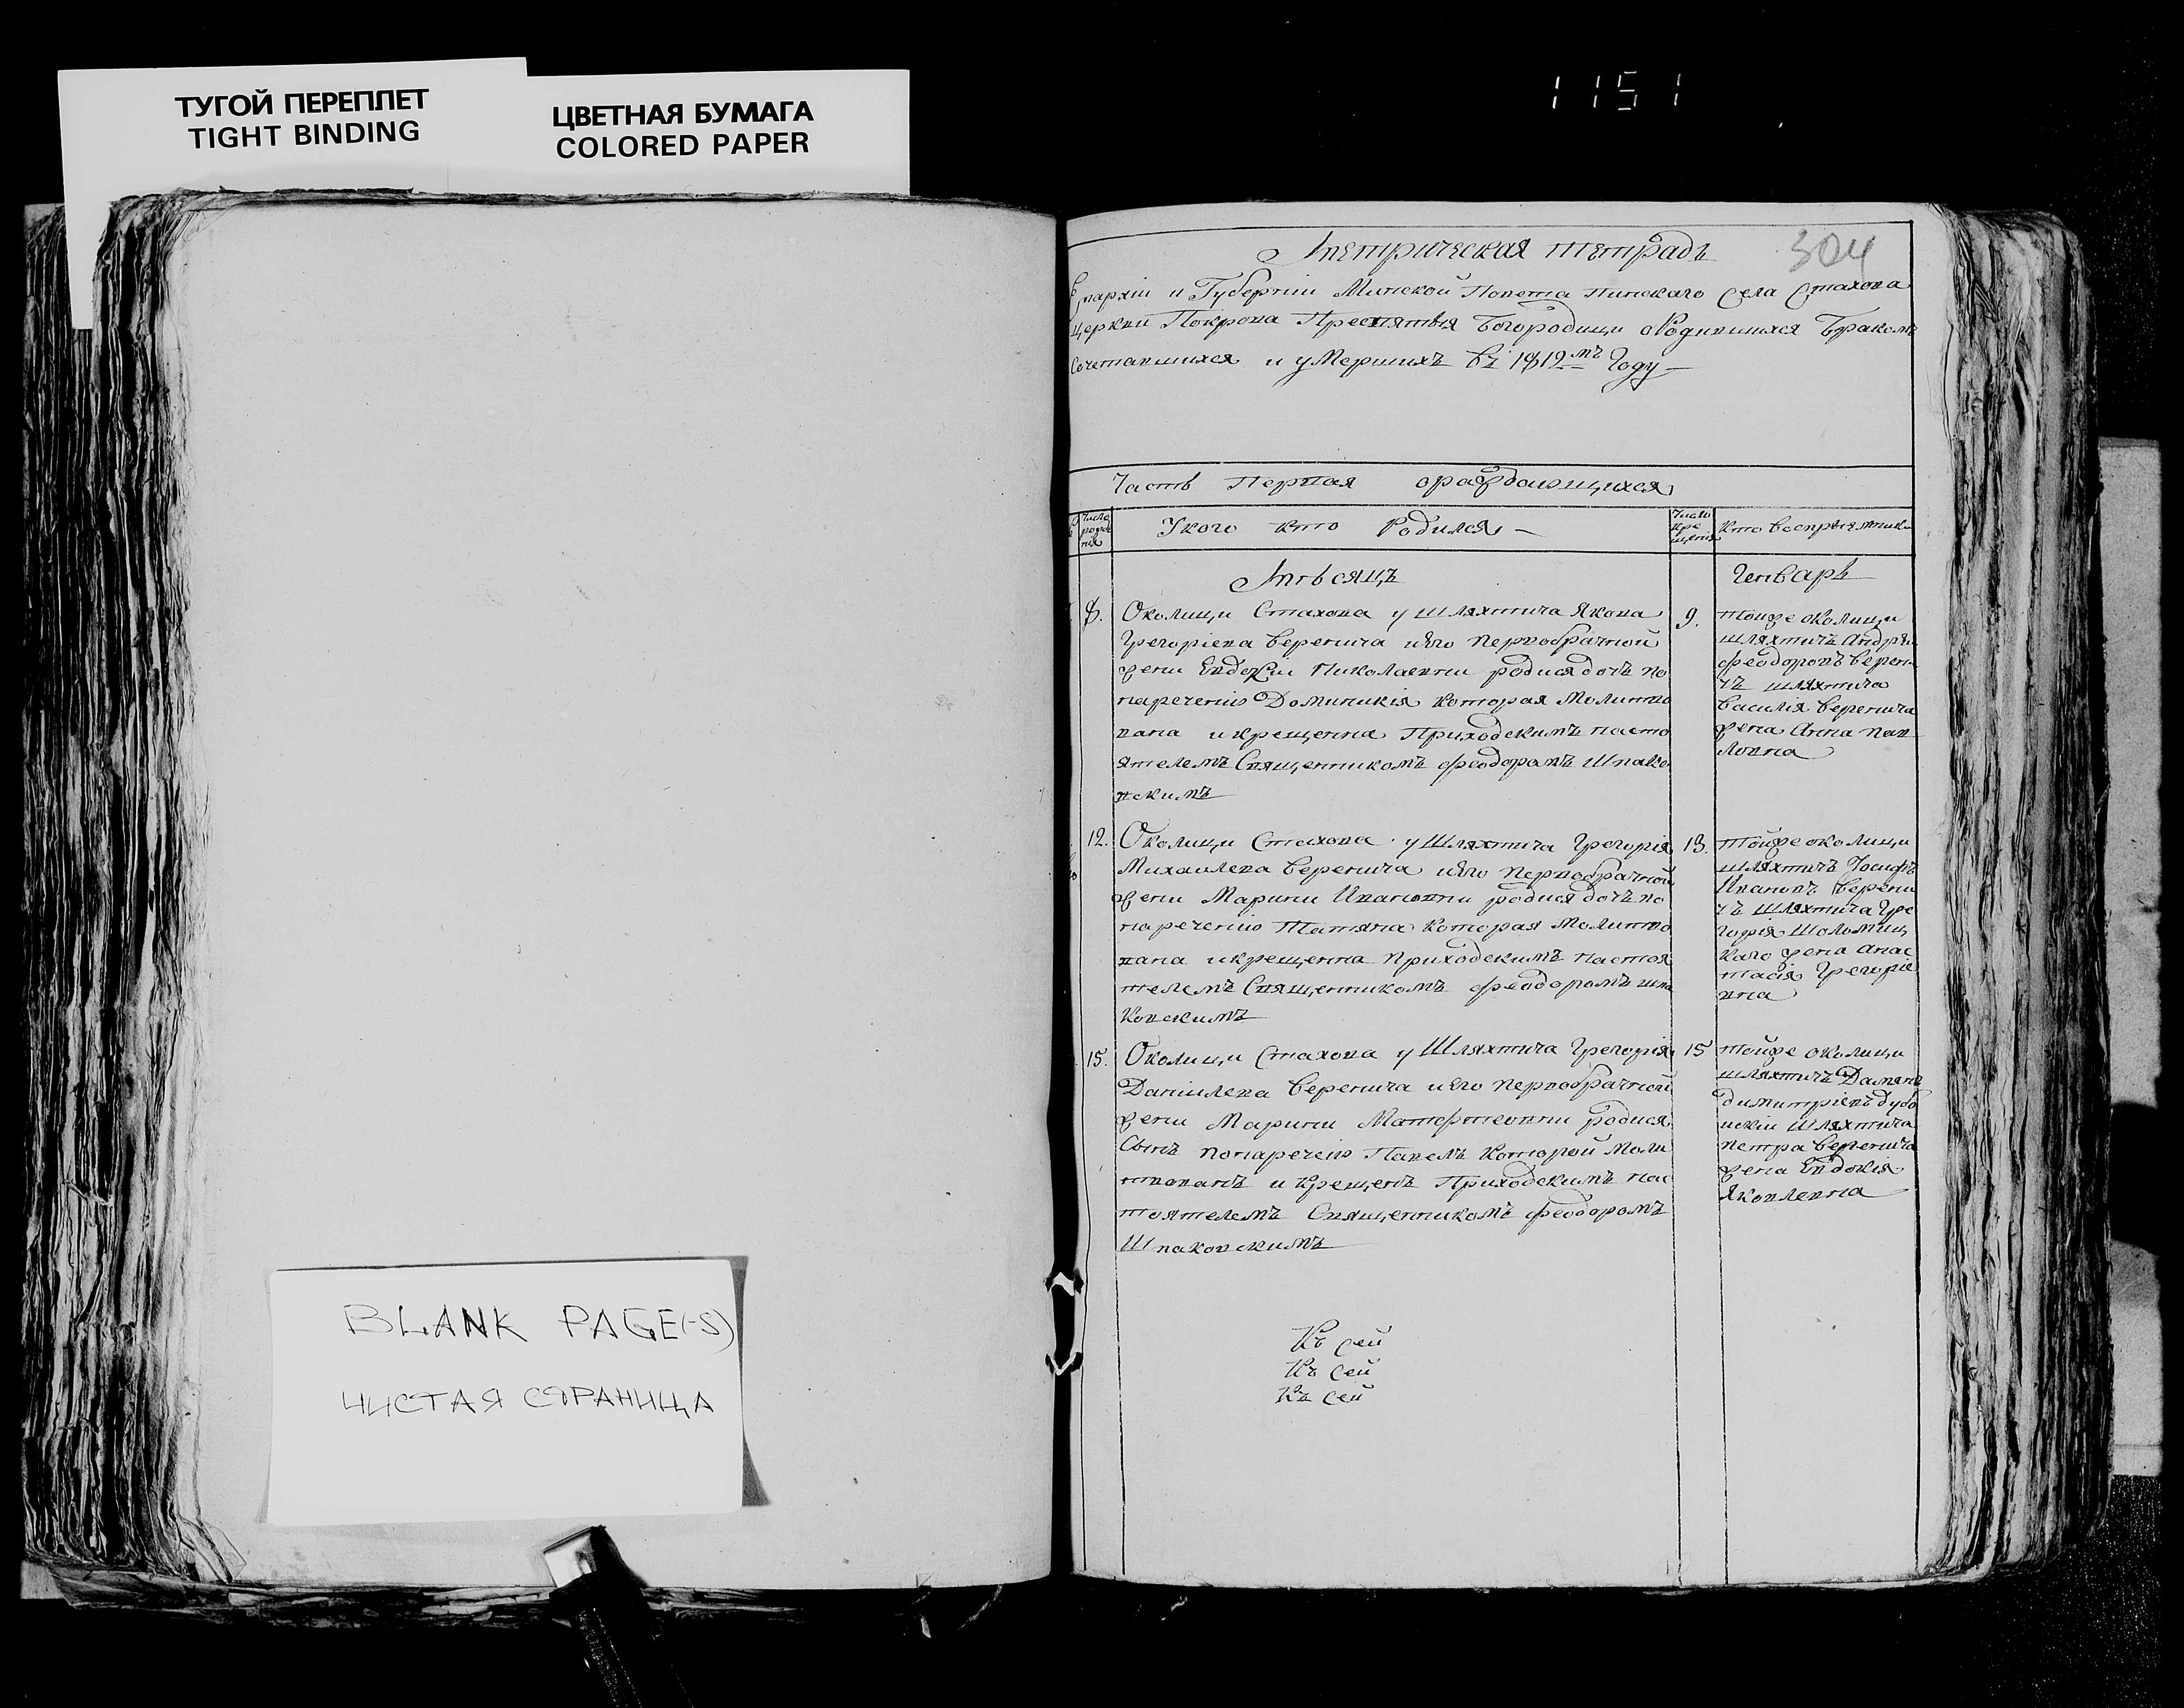 ТУГОЙ ПЕРЕПЛЕТ
TIGHT BINDING
ЦВЕТНАЯ БУМАГА
COLORED PAPER
1151
304
Метрическая тетрадь
Епархіи и Губерніи Минской Повета Пинскаго Села Стахова
Церкви Покрова Пресвятыя Богородици о Родившихся Бракомъ
Сочетавшихся и умершихъ Въ 1819мъ Году
Часть Первая о раждающихся
Число рожденія
У кого кто Родился
Число крещенія
Кто восприемники
Мѣсяцъ
Генварь
8. Околици Стахова у шляхтича Якова
Грегоріева Веренича и его первобрачной
жени Евдокіи Николаевни родися дочь по
наречению Доминикія которая молитво
вана и крещенна Приходскимъ насто
ятелемъ Священникомъ Феодоромъ Шпако
вскимъ
9. тойже околици
шляхтичъ Андрей
Феодоровъ Верени
чъ шляхтича
Василія Веренича
жена Анна Пав
ловна
12. Околици Стахова у Шляхтича Грегорія
Михаилева Веренича и его первобрачной
жени Марини Ивановни родися дочь по
наречению Татяна которая молитво
вана и крещенна приходскимъ настоя
телемъ Священникомъ Феодоромъ шпа
ковскимъ
13. тойже околици
шляхтичъ Іосифъ
Ивановъ Верени
чъ шляхтича Гре
горія Шоломиц
каго жена Анас
тасія Грегоріе
вна
15. Околици Стахова у Шляхтича Грегорія
Даніилева Веренича и его первобрачной
жени Марини Матфеовни родися
Сынъ по наречению Павелъ которой моли
твованъ и крещенъ Приходскимъ нас
тоятелемъ Священникомъ Феодоромъ
Шпаковскимъ
15 тойже околици
шляхтичъ Дамянъ
Димитріевъ Дубо
искій шляхтича
Петра Веренича
жена Евдокія
Яковлевна
Къ сей
Къ сей
Къ сей
BLANK PAGE(-S)
ЧИСТАЯ СТРАНИЦА